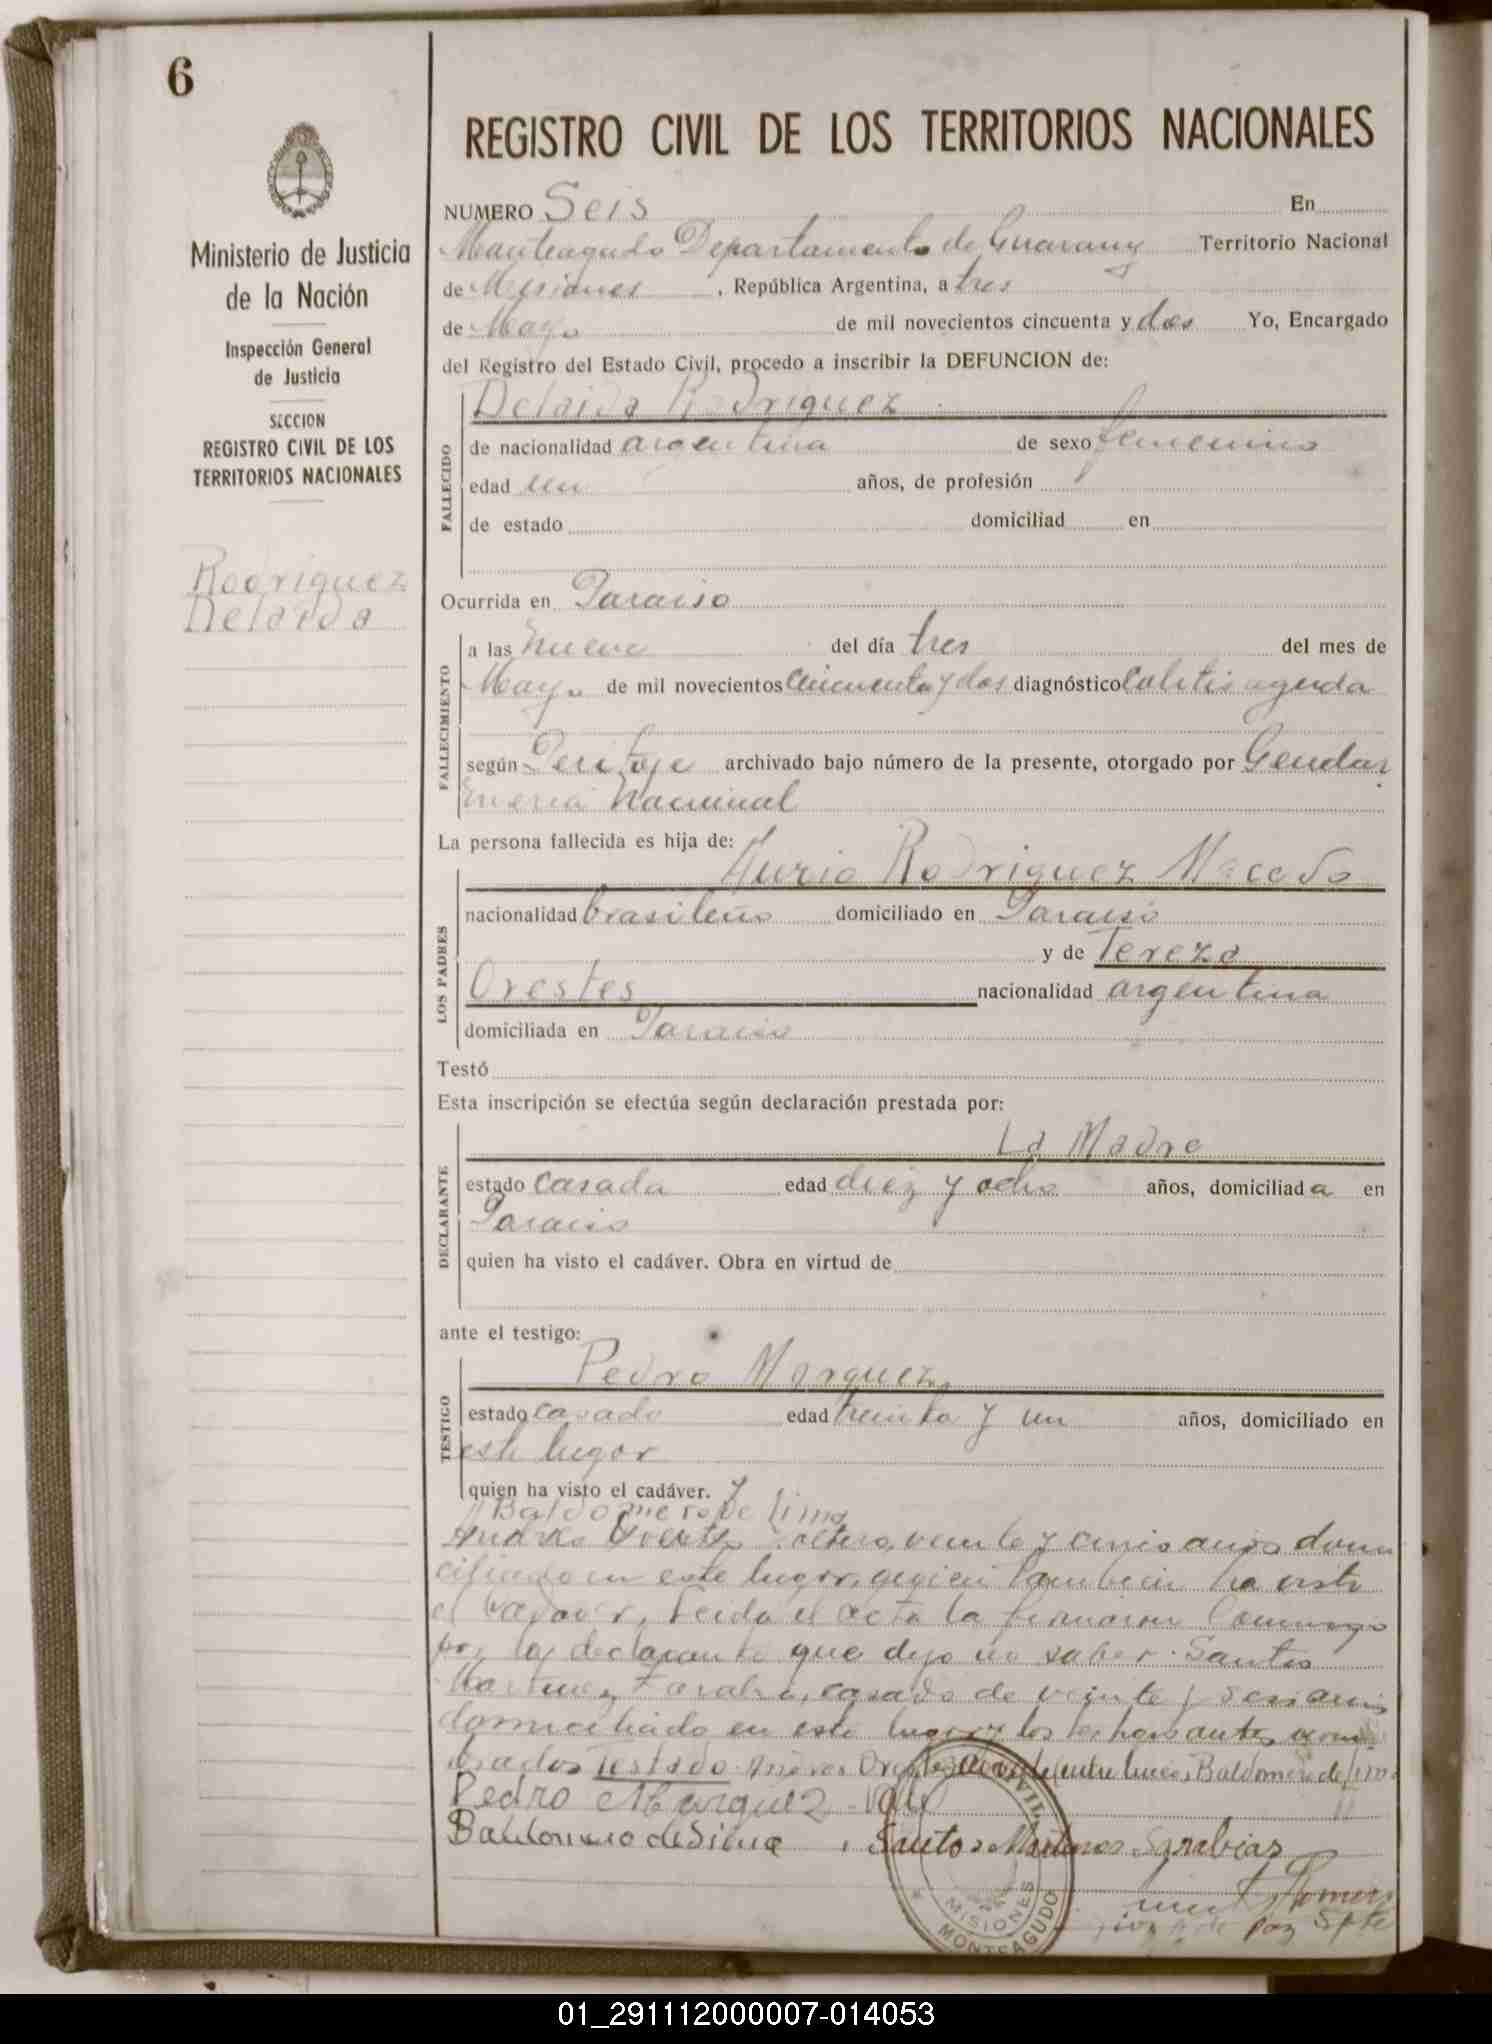 6
Ministerio de Justicia
de la Nación
Inspección General
de Justicia
SECCION
REGISTRO CIVIL DE LOS
TERRITORIOS NACIONALES
Rodriguez
Delaida
REGISTRO CIVIL DE LOS TERRITORIOS NACIONALES
NUMERO Seis En
Monteagudo Departamento de Guarany Territorio Nacional
de Misiones, República Argentina, a tres
de Mayo de mil novecientos cincuenta y dos Yo, Encargado
del Registro del Estado Civil, procedo a inscribir la DEFUNCION de:
Delaida Rodriguez
FALLECIDO
de nacionalidad argentina de sexo femenino
edad un años, de profesión
de estado domiciliad en
Ocurrida en Paraiso
FALLECIMIENTO
a las nueve del día tres del mes de
Mayo de mil novecientos cincuenta y dos diagnóstico Colitis aguda
según Peritaje archivado bajo número de la presente, otorgado por Gendar
meria Nacional
La persona fallecida es hija de:
LOS PADRES
Rodriguez Macedo
nacionalidad brasileño domiciliado en Paraiso
y de Tereza
Orestes nacionalidad argentina
domiciliada en Paraiso
Testó
Esta inscripción se efectúa según declaración prestada por:
DECLARANTE
La Madre
estado casada edad diez y ocho años, domiciliada en
Paraiso
quien ha visto el cadáver. Obra en virtud de
ante el testigo:
TESTIGO
Pedro Marquez
estado casado edad treinta y un años, domiciliado en
este lugar
quien ha visto el cadáver. y
Baldomero de Lima
soltero, veinte y cinco anos domi
ciliado en este lugar, quien tambien ha visto
el cadaver, Leida el acta la firmaron Conmigo
por la declarante que dijo no saber Santos
Martinez Sarabia, casado de veinte y seis anos
domiciliado en este lugar y los testigos antes nom
brados Testado Andres Orestes no vale (entre lineas Baldomero de Lima
Pedro Marquez Vale
Baldomero de Silva, Santos Martinez Sarabias
Juez de paz Spte
CIVIL
MISIONES
MONTEAGUDO
01_291112000007-014053